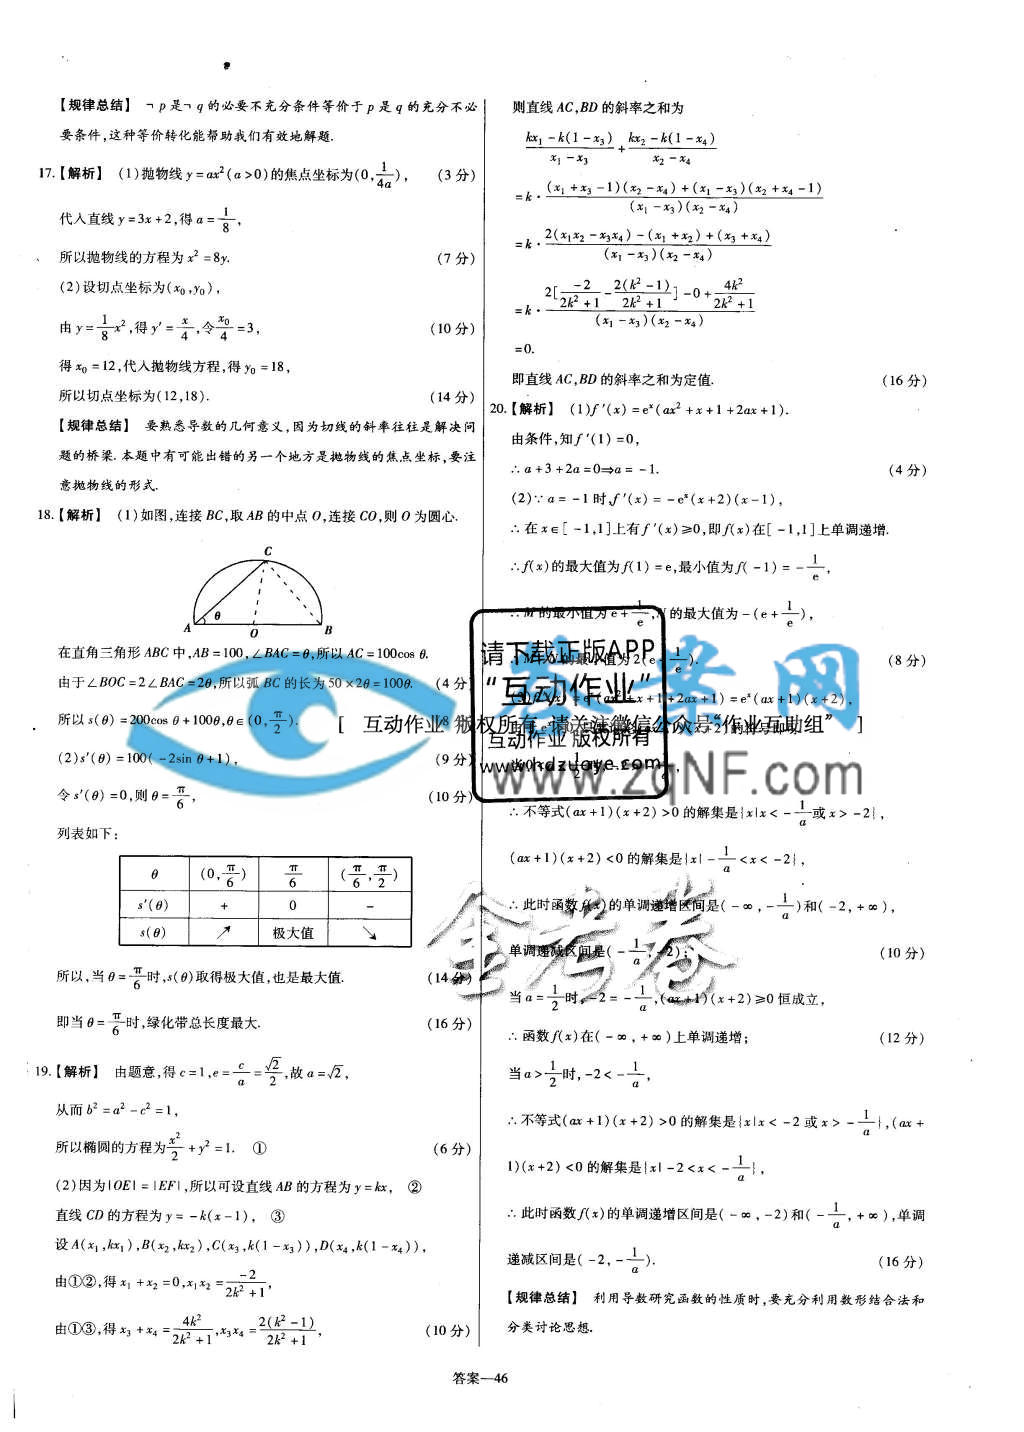 【规律总结】 ¬p是¬q的必要不充分条件等价于p是q的充分不必
要条件,这种等价转化能帮助我们有效地解题.
17.【解析】 (1)抛物线y=ax²(a>0)的焦点坐标为(0,1/4a), (3分)
代入直线y=3x+2,得a=1/8,
所以抛物线的方程为x²=8y. (7分)
(2)设切点坐标为(x₀,y₀),
由y=1/8x²,得y′=x/4,令x₀/4=3, (10分)
得x₀=12,代入抛物线方程,得y₀=18,
所以切点坐标为(12,18). (14分)
【规律总结】 要熟悉导数的几何意义,因为切线的斜率往往是解决问
题的桥梁.本题中有可能出错的另一个地方是抛物线的焦点坐标,要注
意抛物线的形式.
18.【解析】 (1)如图,连接BC,取AB的中点O,连接CO,则O为圆心.
C
θ
A O B
在直角三角形ABC中,AB=100,∠BAC=θ,所以AC=100cos θ.
由于∠BOC=2∠BAC=2θ,所以弧BC的长为50×2θ=100θ. (4分)
所以s(θ)=200cos θ+100θ,θ∈(0,π/2). (8
(2)s′(θ)=100(-2sin θ+1), (9分)
令s′(θ)=0,则θ=π/6, (10分)
列表如下:
θ (0,π/6) π/6 (π/6,π/2)
s′(θ) + 0 -
s(θ) ↗ 极大值 ↘
所以,当θ=π/6时,s(θ)取得极大值,也是最大值. (14分)
即当θ=π/6时,绿化带总长度最大. (16分)
19.【解析】 由题意,得c=1,e=c/a=√2/2,故a=√2,
从而b²=a²-c²=1,
所以椭圆的方程为x²/2+y²=1. ① (6分)
(2)因为|OE|=|EF|,所以可设直线AB的方程为y=kx, ②
直线CD的方程为y=-k(x-1), ③
设A(x₁,kx₁),B(x₂,kx₂),C(x₃,k(1-x₃)),D(x₄,k(1-x₄)),
由①②,得x₁+x₂=0,x₁x₂=-2/2k²+1,
由①③,得x₃+x₄=4k²/2k²+1,x₃x₄=2(k²-1)/2k²+1, (10分)
则直线AC,BD的斜率之和为
kx₁-k(1-x₃)/x₁-x₃+kx₂-k(1-x₄)/x₂-x₄
=k·(x₁+x₃-1)(x₂-x₄)+(x₁-x₃)(x₂+x₄-1)/(x₁-x₃)(x₂-x₄)
=k·2(x₁x₂-x₃x₄)-(x₁+x₂)+(x₃+x₄)/(x₁-x₃)(x₂-x₄)
=k·2[-2/2k²+1-2(k²-1)/2k²+1]-0+4k²/2k²+1/(x₁-x₃)(x₂-x₄)
=0.
即直线AC,BD的斜率之和为定值. (16分)
20.【解析】 (1)f′(x)=eˣ(ax²+x+1+2ax+1).
由条件,知f′(1)=0,
∴a+3+2a=0⇒a=-1. (4分)
(2)∵a=-1时,f′(x)=-eˣ(x+2)(x-1),
∴在x∈[-1,1]上有f′(x)≥0,即f(x)在[-1,1]上单调递增.
∴f(x)的最大值为f(1)=e,最小值为f(-1)=-1/e,
∴M的最小值为e+1/e,N的最大值为-(e+1/e),
的最小值为2(e+1/e). (8分)
(ax²+x+1+2ax+1)=eˣ(ax+1)(x+2),
∴不等式(ax+1)(x+2)>0的解集是{x|x<-1/a或x>-2},
(ax+1)(x+2)<0的解集是{x|-1/a<x<-2},
∴此时函数f(x)的单调递增区间是(-∞,-1/a)和(-2,+∞),
单调递减区间是(-1/a,-2); (10分)
当a=1/2时,-2=-1/a,(ax+1)(x+2)≥0恒成立,
∴函数f(x)在(-∞,+∞)上单调递增; (12分)
当a>1/2时,-2<-1/a,
∴不等式(ax+1)(x+2)>0的解集是{x|x<-2或x>-1/a},(ax+
1)(x+2)<0的解集是{x|-2<x<-1/a},
∴此时函数f(x)的单调递增区间是(-∞,-2)和(-1/a,+∞),单调
递减区间是(-2,-1/a). (16分)
【规律总结】 利用导数研究函数的性质时,要充分利用数形结合法和
分类讨论思想.
答案—46
请下载正版APP
“互动作业”
互动作业 版权所有
www.hdzuoye.com
[ 互动作业 版权所有 请关注微信公众号“作业互助组” ]
答案网
www.zqNF.com
金考卷